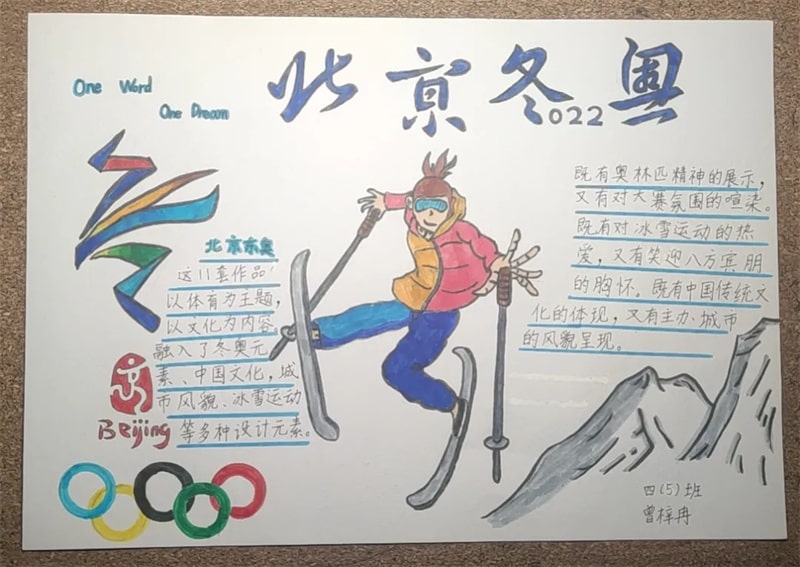 One Word
One Dream
北京冬奥
2022
北京东奥
这11套作品
以体育为主题，
以文化为内容，
融入了冬奥元
素、中国文化，城
市风貌、冰雪运动
等多种设计元素。
Beijing
既有奥林匹精神的展示，
又有对大赛氛围的喧染。
既有对冰雪运动的热
爱，又有笑迎八方宾朋
的胸怀。既有中国传统文
化的体现，又有主办城市
的风貌呈现。
四(5)班
曾梓冉